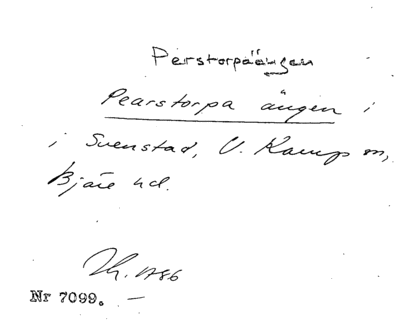 Perstorpaängen
Pearstorpa ängen i
i Svenstad, V. Karup sn,
Bjäre hd.
Th. 1786
Nr 7099.